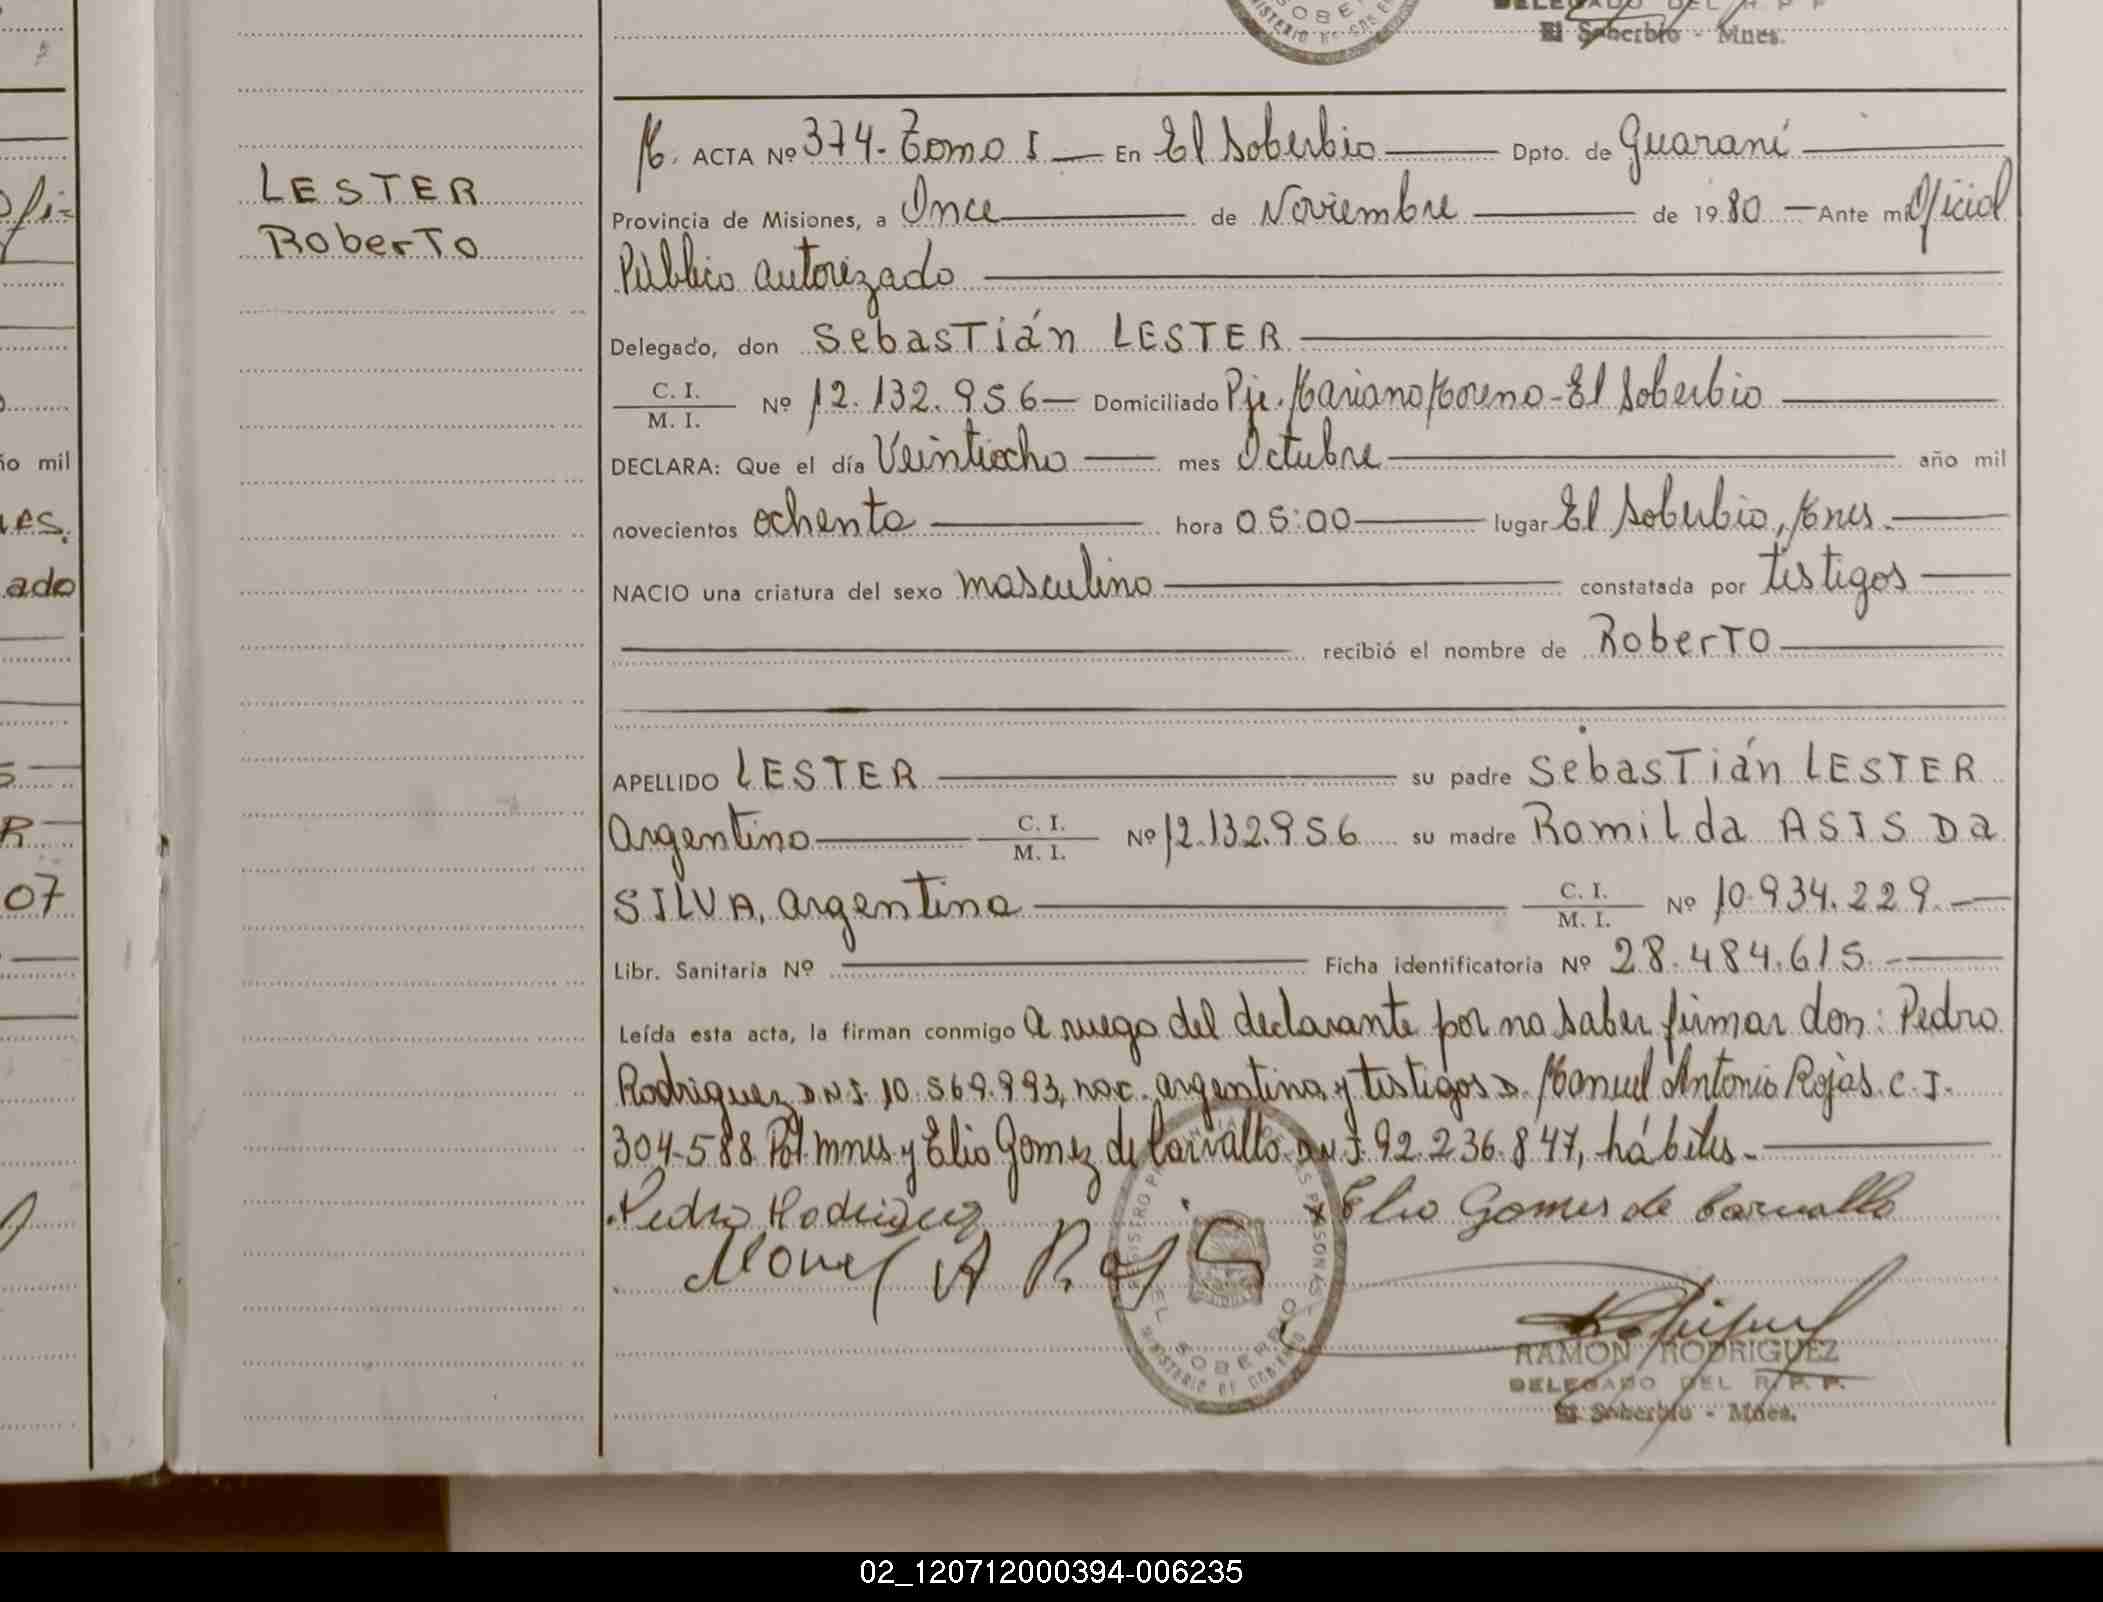 DELEGADO DEL R. P. P.
El Soberbio - Mnes.
LESTER
Roberto
M. ACTA Nº 374 - Tomo I — En El Soberbio — Dpto. de Guaraní
Provincia de Misiones, a Once de Noviembre de 1980 — Ante mi Oficial
Público autorizado
Delegado, don Sebastián LESTER
C. I. / M. I. Nº 12.132.956 — Domiciliado Pje. Mariano Moreno - El Soberbio
DECLARA: Que el día Veintiocho mes Octubre año mil
novecientos ochenta hora 05:00 lugar El Soberbio, Mnes.
NACIO una criatura del sexo masculino constatada por testigos
recibió el nombre de Roberto
APELLIDO LESTER su padre Sebastián LESTER
Argentino C. I. / M. I. Nº 12.132.956 su madre Romilda ASIS Da
SILVA, argentina C. I. / M. I. Nº 10.934.229.
Libr. Sanitaria Nº Ficha identificatoria Nº 28.484.615.
Leída esta acta, la firman conmigo a ruego del declarante por no saber firmar don: Pedro
Rodriguez DNI. 10.569.993, nac. argentina y testigos D. Manuel Antonio Rojas C.I.
304.588 Pol. Mnes y Elio Gomez de Carvallo DNI. 92.236.847, hábiles.
Pedro Rodriguez Elio Gomes de Carvallo
Manuel A Rojas
EL SOBERBIO
MINISTERIO DE GOBIERNO
RAMON RODRIGUEZ
DELEGADO DEL R. P. P.
El Soberbio - Mnes.
ño mil
ado
07
02_120712000394-006235